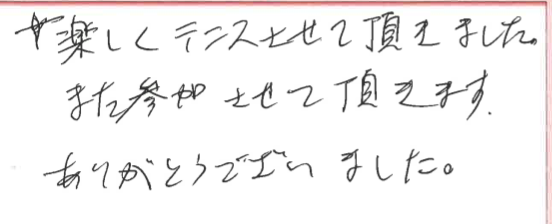 楽しくテニスさせて頂きました。
また参加させて頂きます.
ありがとうございました。